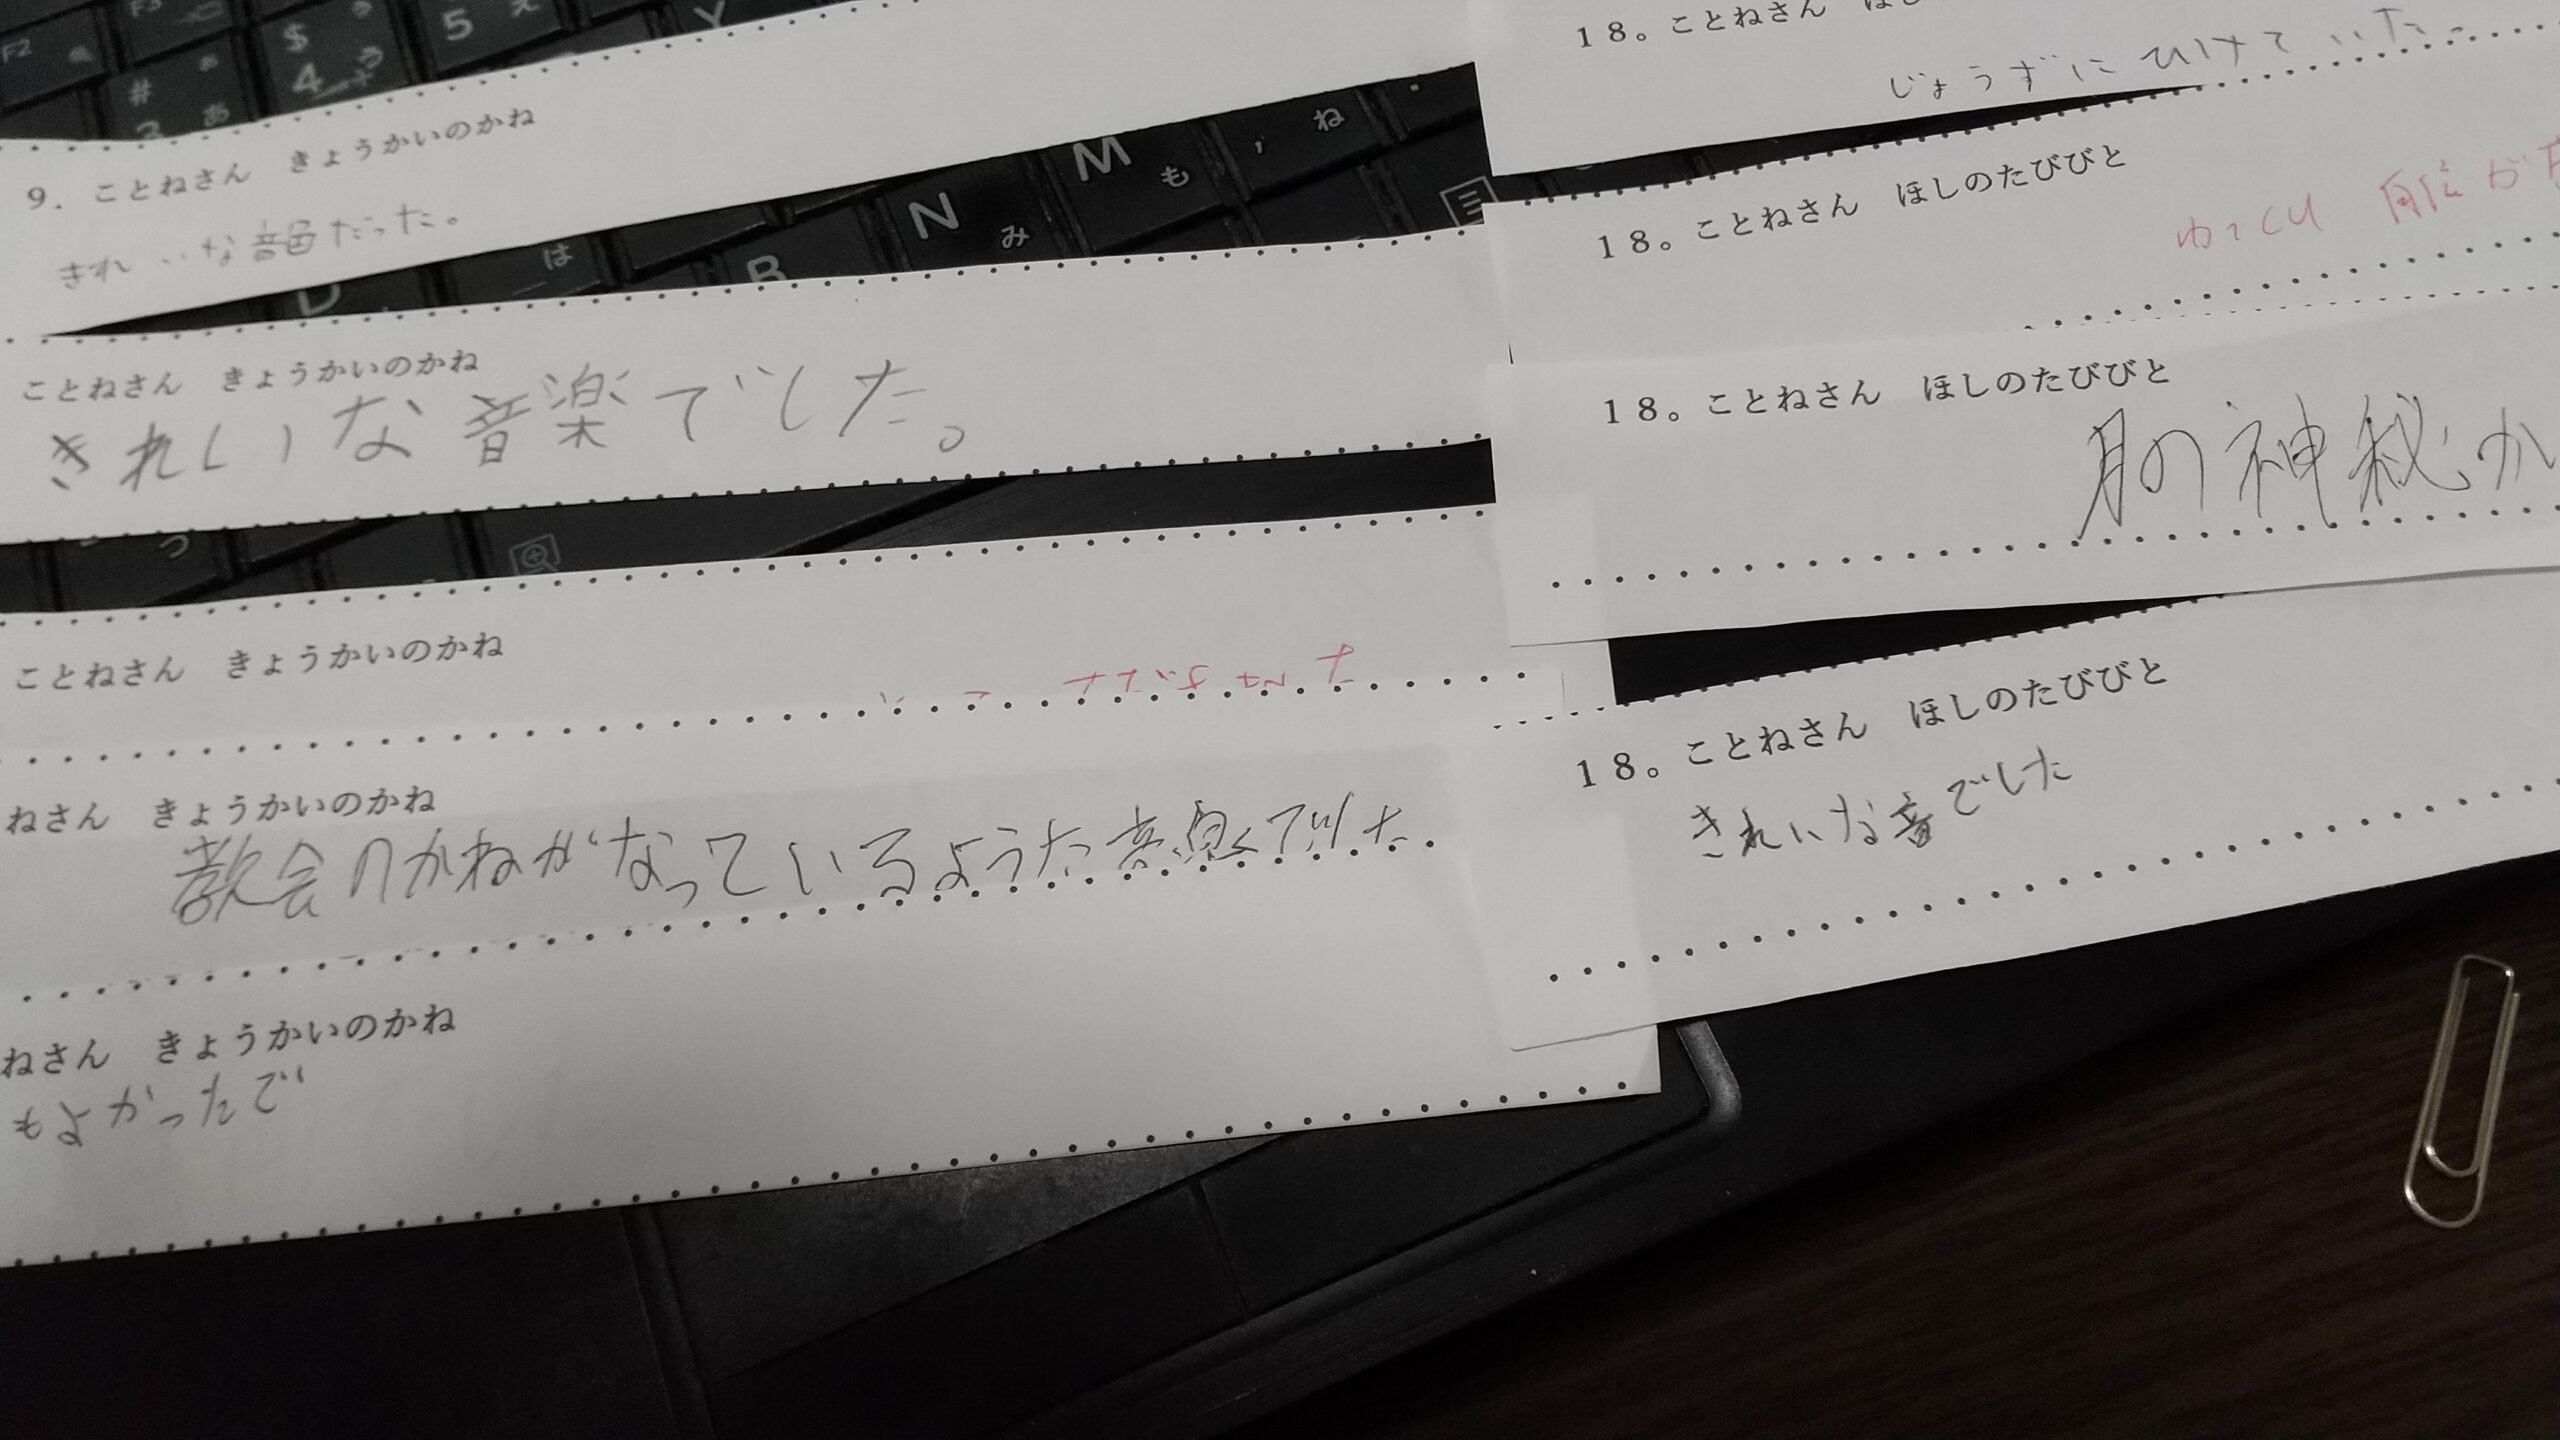 9. ことねさん きょうかいのかね
きれいな音色だった。
ことねさん きょうかいのかね
きれいな音楽でした。
ことねさん きょうかいのかね
ねさん きょうかいのかね
教会のかねがなっているような音色でした
ねさん きょうかいのかね
もよかったで
18。ことねさん
じょうずにひけていた
18。ことねさん ほしのたびびと
ゆっくり
18。ことねさん ほしのたびびと
月の神秘
18。ことねさん ほしのたびびと
きれいな音でした
F2
F3
#
あ
$
4
う
5
え
Y
N
み
M
も
,
ね
.
は
B
つ